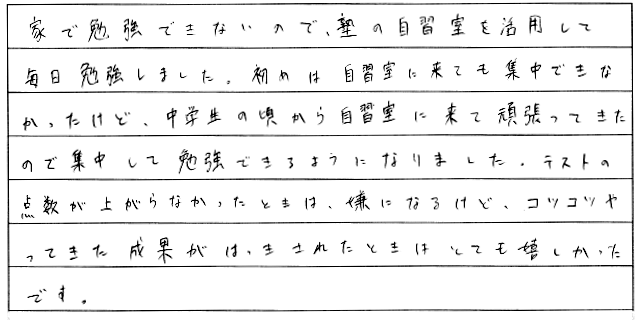 家で勉強できないので、塾の自習室を活用して
毎日勉強しました。初めは自習室に来ても集中できな
かったけど、中学生の頃から自習室に来て頑張ってきた
ので集中して勉強できるようになりました。テストの
点数が上がらなかったときは、嫌になるけど、コツコツや
ってきた成果がはっきされたときはとても嬉しかった
です。